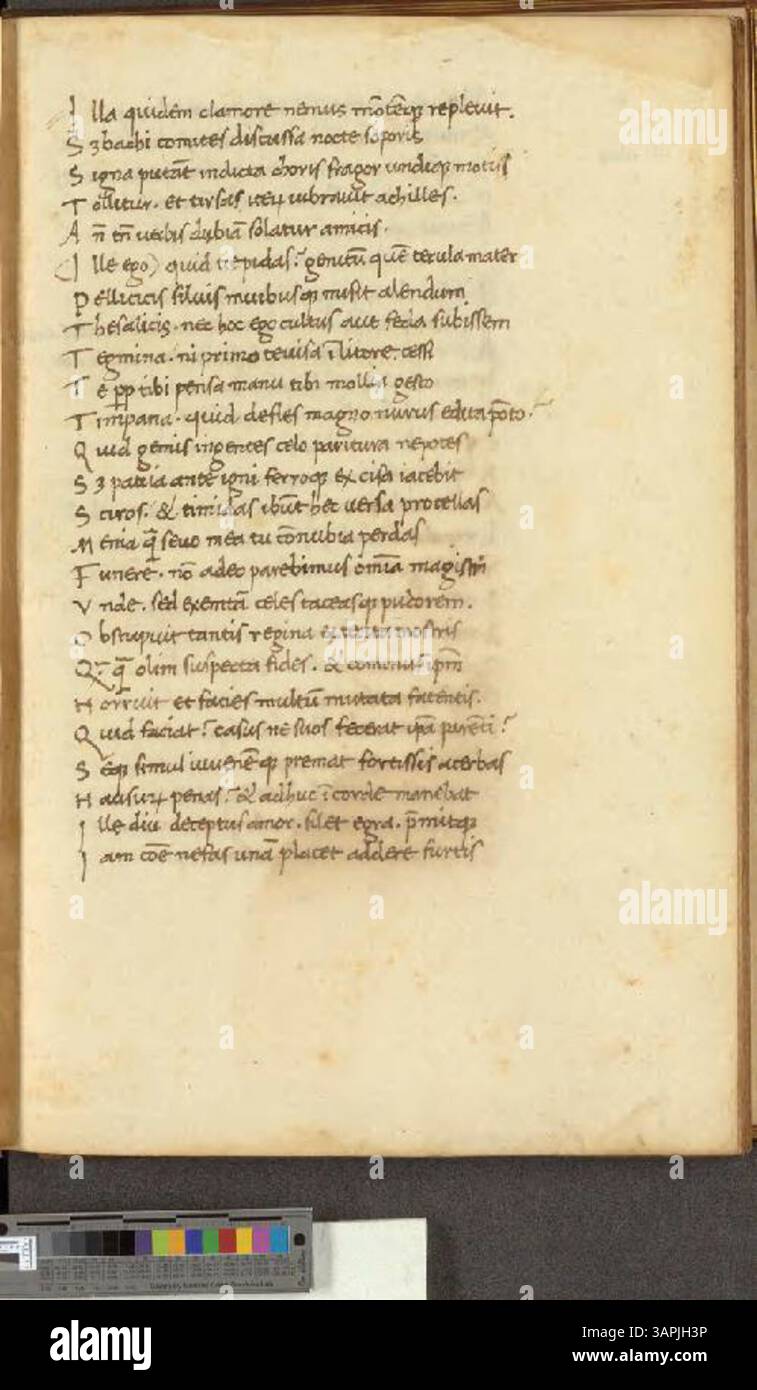 Illa quidem clamore nemus mōteq; repleuit.
Sȝ bachi comites discussa nocte soporis
Signa putāt indicta choris fragor undiq; motus
Tollitur. et tirsas iteꝝ uibrauit achilles.
An̄ tn̄ uerbis dubiā solatur amicis.
Ille ego) quid trepidas? genitū quē cerula mater
Pellicicis siluis niuibusq; misit alendum
Thesalicis. nec hoc ego cultus aut feda subissem
Tegmina. ni primo te uisa ī litore. cessi
Te ꝓp tibi pensa manu tibi mollia gesto
Timpana. quid defles magno nurus edita pōto?
Quid gemis ingentes celo paritura nepotes
Sȝ patria ante igni ferroq; excisa iacebit
Sciros. & timidas ibūt hec uersa procellas
Menia q̄ seuo mea tu cōnubia perdas
Funere. nō adeo parebimus omīa magistri
Vnde. sed exemtā celes taceasq; pudorem.
Obstupuit tantis regina
Q; q̄ olim suspecta fides. &
Horruit et facies multū mutata fatentis.
Quid faciat? casus ne suos feerat ip̄a pirēti?
Seq; simul iuuenēq; premat fortissis acerbas
Hausuꝝ penas? & adhuc ī corde manebat
Ille diu deceptus amor. silet egra. p̄mitq;
Iam cōe nefas unā placet addere furtis
alamy
3APJH3P
www.alamy.com